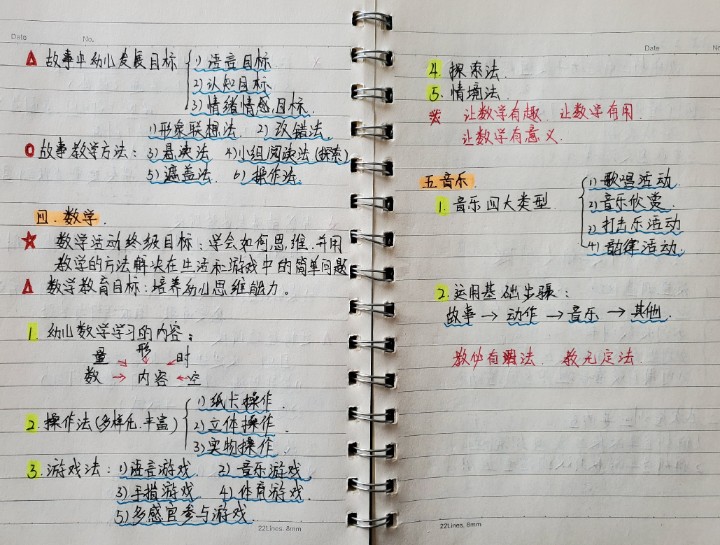 Date No.
故事中幼儿发展目标 1) 语言目标
2) 认知目标
3) 情绪情感目标.
故事教学方法: 1) 形象联想法. 2) 改错法.
3) 悬决法 4) 小组阅读法(探索)
5) 遮盖法. 6) 操作法.
四. 数学.
数学活动终级目标: 学会如何思维. 并用
数学的方法解决在生活和游戏中的简单问题
数学教育目标: 培养幼儿思维能力。
1. 幼儿数学学习的内容:
量 形 时
数 → 内容 ← 空
2. 操作法(多样化. 丰富) 1) 纸卡操作.
2) 立体操作.
3) 实物操作.
3. 游戏法: 1) 语言游戏 2) 音乐游戏.
3) 手指游戏 4) 体育游戏.
5) 多感官参与游戏.
22Lines, 8mm
Date
4. 探索法.
5. 情境法.
让数学有趣 让数学有用.
让数学有意义.
五. 音乐.
1. 音乐四大类型 1) 歌唱活动
2) 音乐欣赏.
3) 打击乐活动
4) 韵律活动.
2. 运用基础步骤:
故事 → 动作 → 音乐 → 其他.
教学有法 教无定法.
22Lines, 8mm